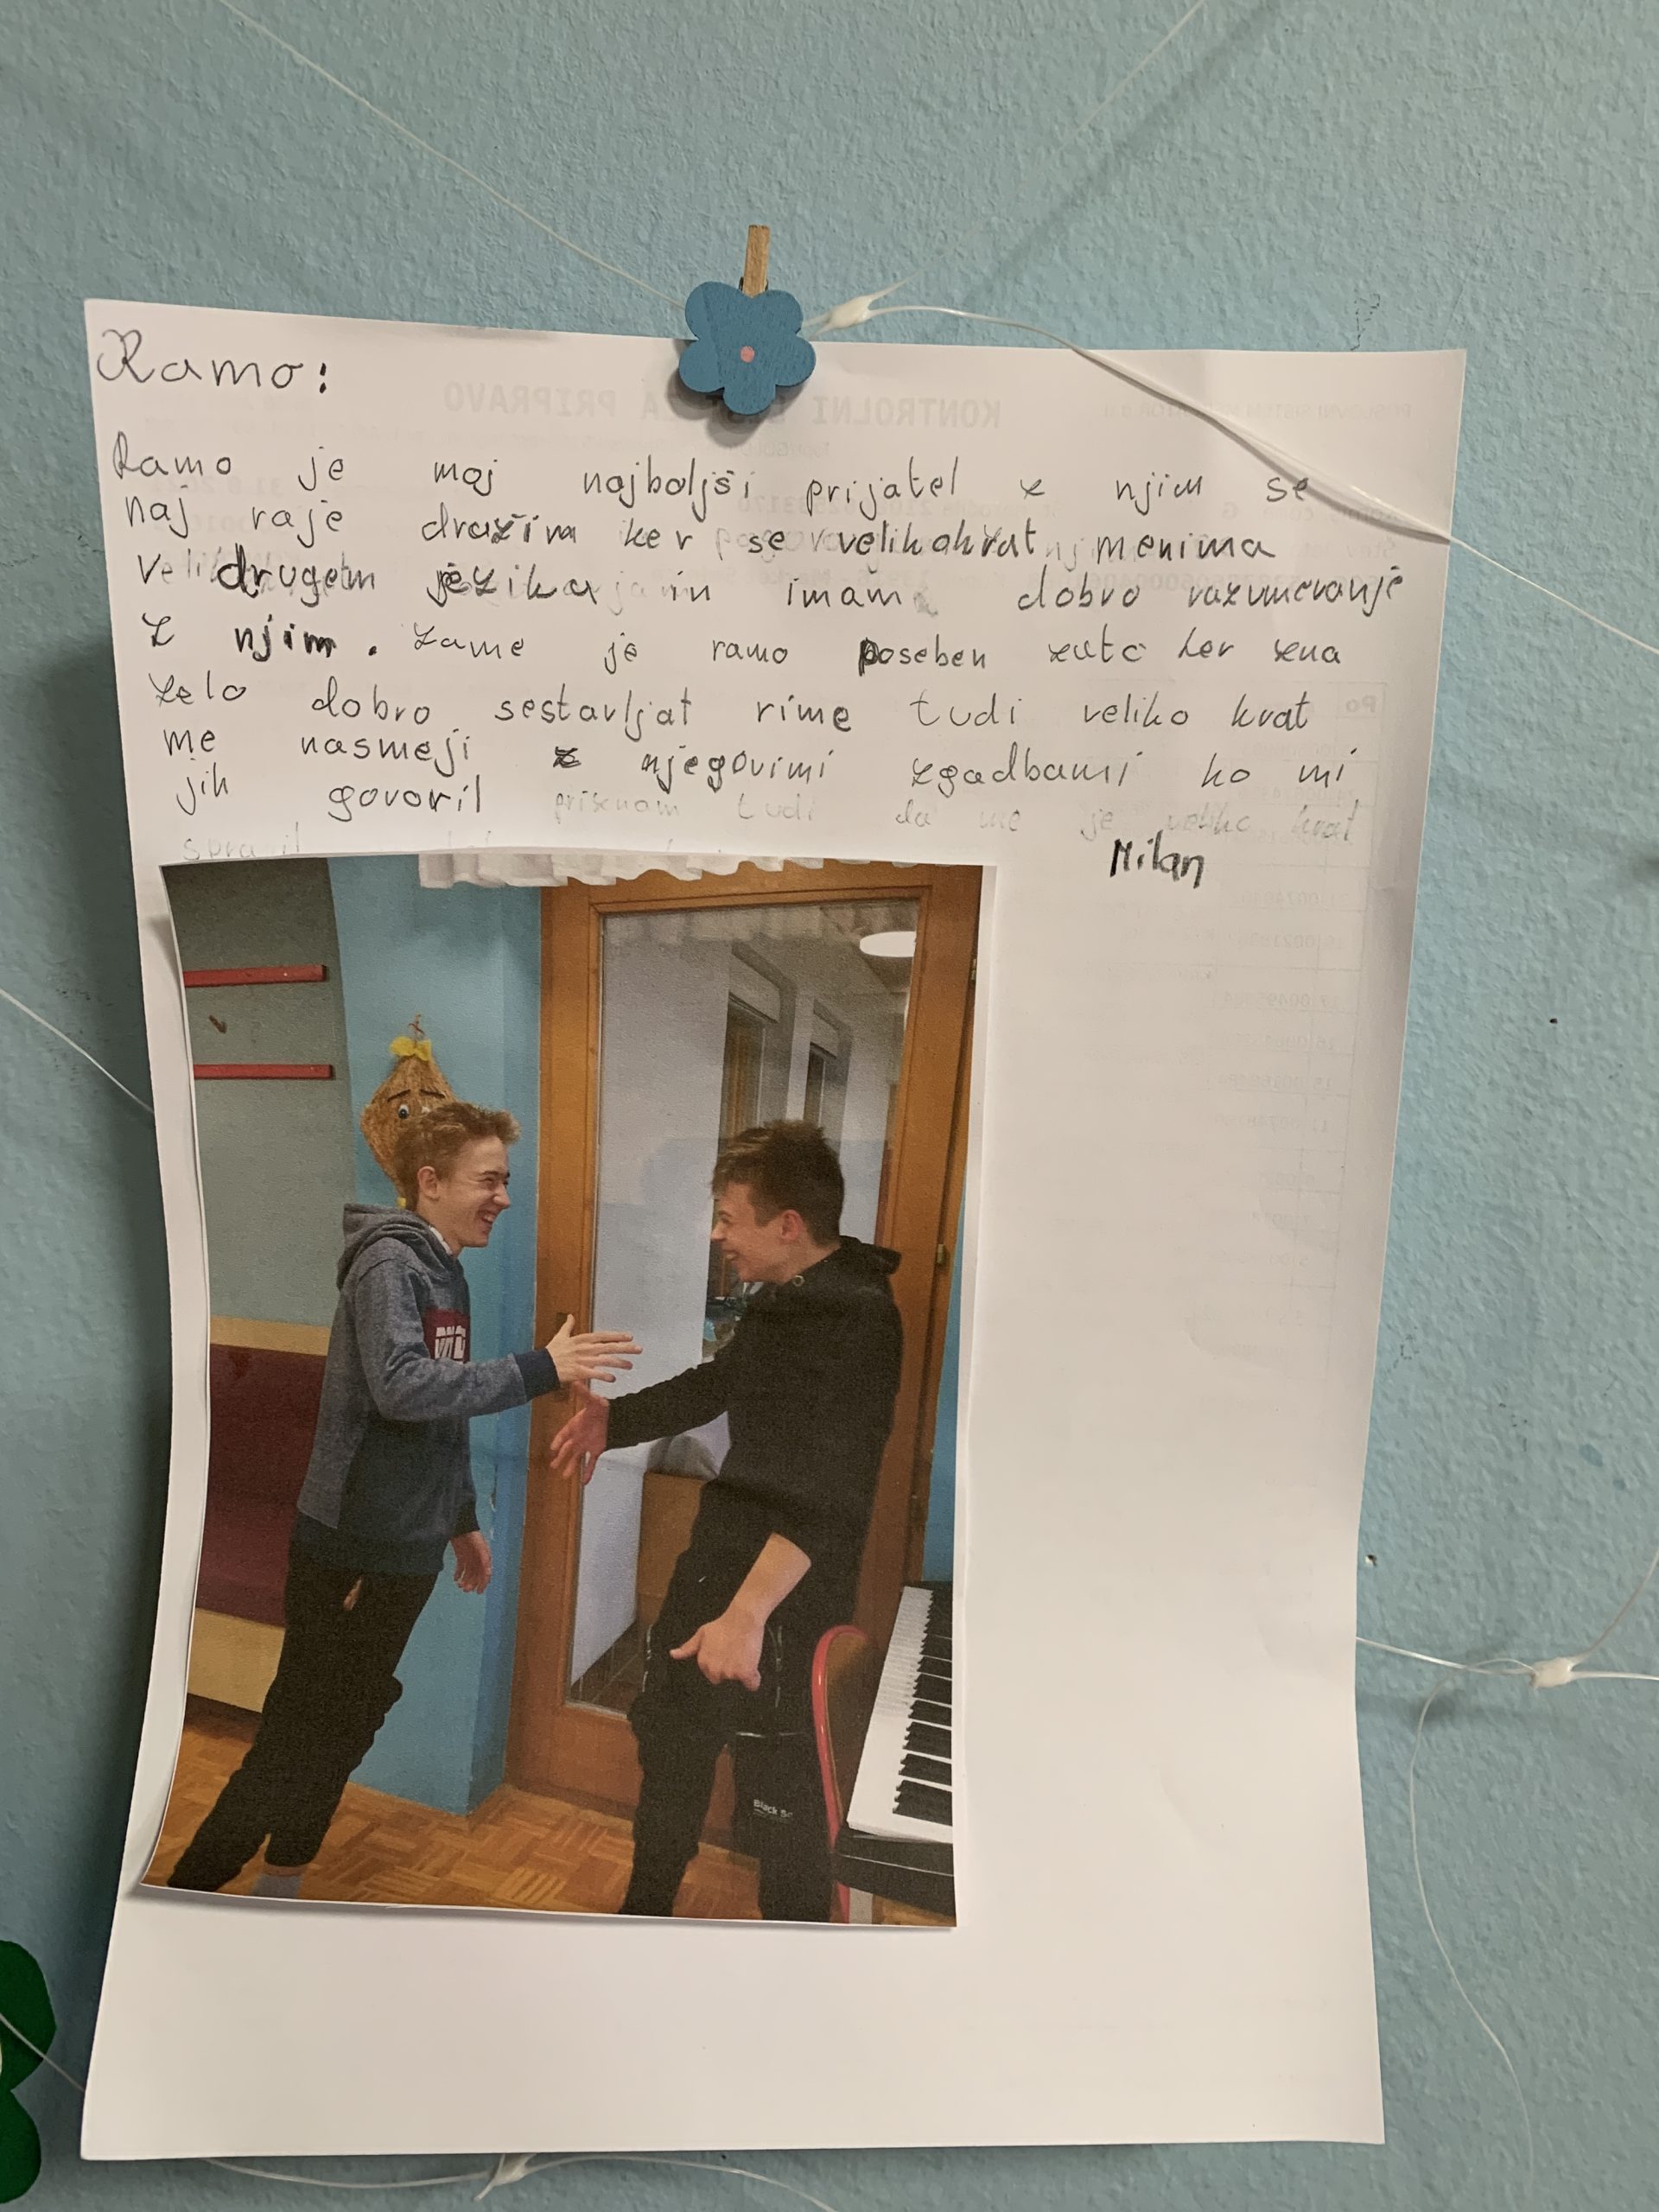 Ramo:
KONTROLNI ZA PRIPRAVO
Ramo je moj najboljši prijatel z njim se
naj raje družim ker se velikokrat menima
drugem jezika in imam dobro razumevanje
z njim. zame je ramo poseben zato ker zna
zelo dobro sestavljat rime tudi veliko krat
me nasmeji z njegovimi zgadbami ko mi
jih govoril priznam tudi da me je veliko krat
spravil
Milan
Black